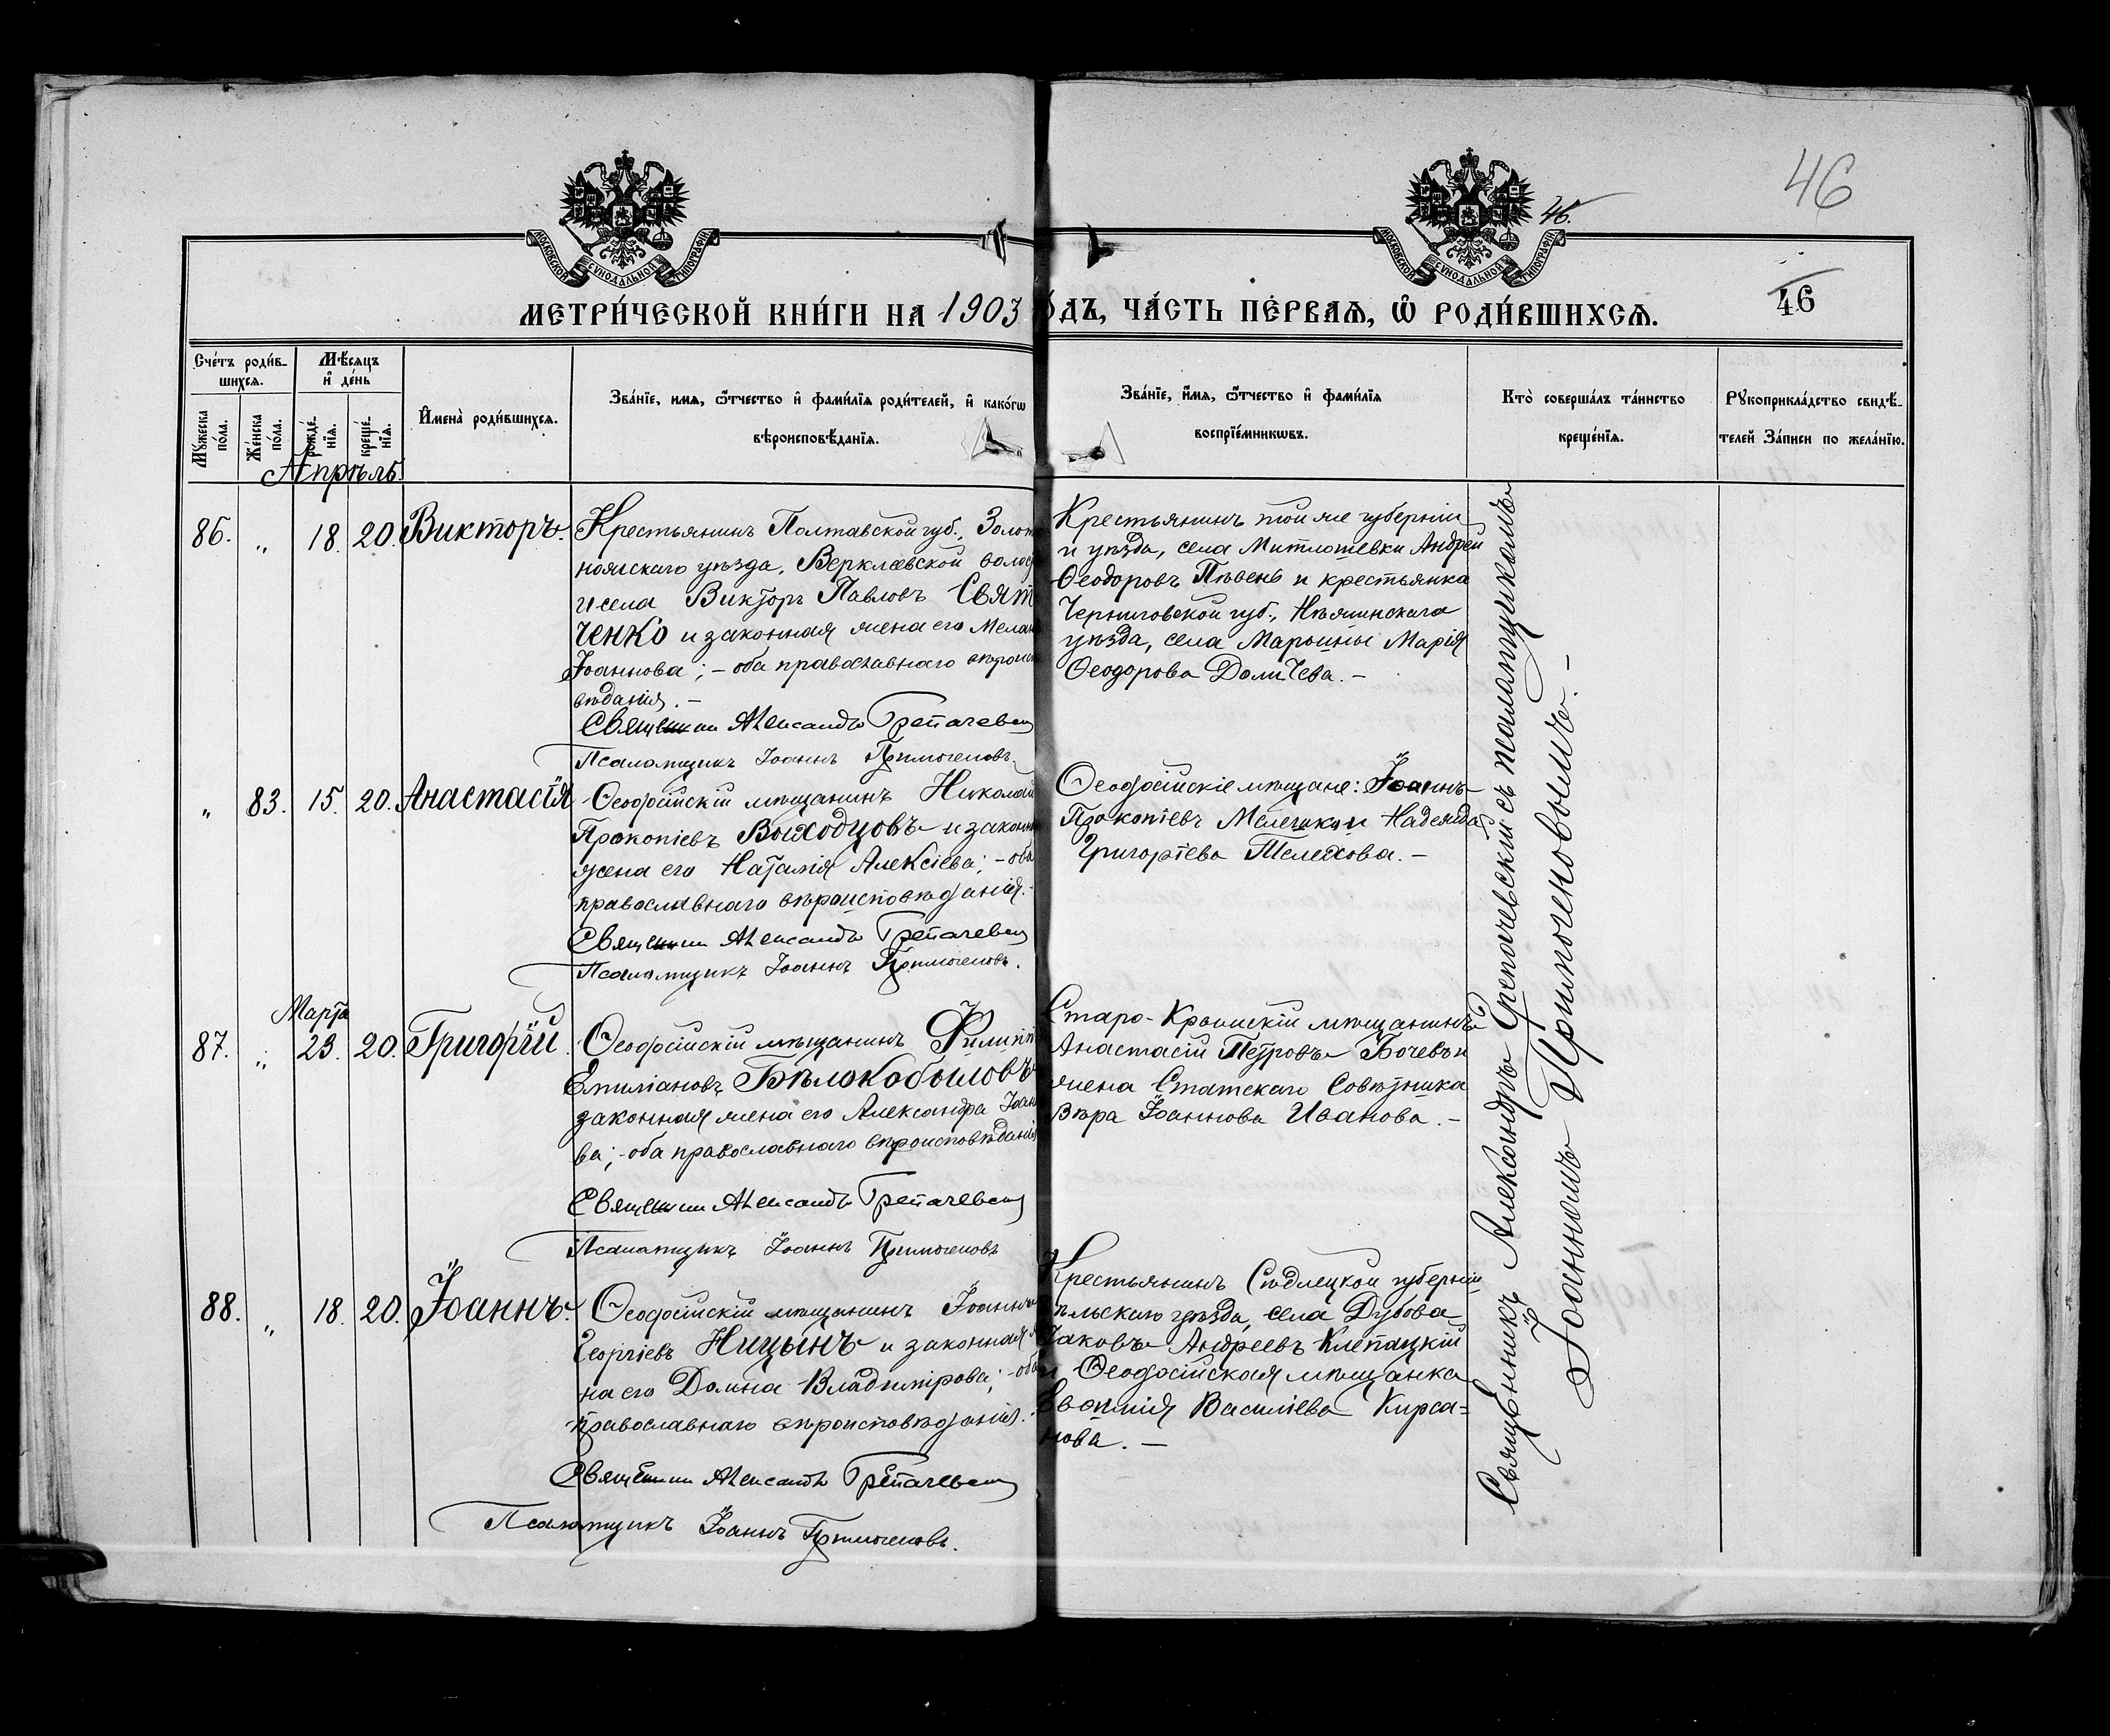 46
46.
МОСКОВСКОЙ СѴНОДАЛЬНОЙ ТИПОГРАФІИ
МОСКОВСКОЙ СѴНОДАЛЬНОЙ ТИПОГРАФІИ
МЕТРИ́ЧЕСКОЙ КНИ́ГИ НА 1903 ГО́ДЪ, ЧА́СТЬ ПЕ́РВАѦ, Ѽ РОДИ́ВШИХСѦ.
46
Сче́тъ роди́в-
шихсѧ.
Мꙋ́жеска по́ла.
Же́нска по́ла.
Мѣ́сѧцъ
и҆ де́нь
рожде́-
нїѧ.
креще́-
нїѧ.
И҆мена̀ роди́вшихсѧ.
Зва́нїе, имѧ, ѻ҆́тчество и҆ фами́лїѧ роди́телей, и҆ како́гѡ
вѣроисповѣ́данїѧ.
Зва́нїе, и҆́мѧ, ѻ҆́тчество и҆ фами́лїѧ
воспрїе́мникѡвъ.
Кто̀ соверша́лъ та́инство
креще́нїѧ.
Рꙋкоприкла́дство свидѣ́-
телей За́писи по жела́нїю.
Апрѣль.
86. „ 18. 20. Викторъ.
Крестьянинъ Полтавской губ., Золот
ношскаго уѣзда, Верклевской волос
и села Викторъ Павловъ Свят
ченко и законная жена его Мелан
Іоаннова; – оба православнаго вѣроис
вѣданія. –
Священник Александръ Трепачевск
Псаломщикъ Іоаннъ Примоченовъ.
Крестьянинъ той же губерніи
и уѣзда, села Митлошевки Андрей
Ѳеодоровъ Пѣвень и крестьянка
Черниговской губ., Нѣжинскаго
уѣзда, села Марьины Марія
Ѳеодорова Доличева. –
„ 83. 15. 20. Анастасія
Ѳеодосійскій мѣщанинъ Николай
Прокопіевъ Выходцовъ и законн
жена его Наталія Алексіева; – оба
православнаго вѣроисповѣданія. –
Священник Александръ Трепачевск
Псаломщикъ Іоаннъ Примоченовъ.
Ѳеодосійскіе мѣщане: Іоаннъ
Прокопіевъ Мелешко и Надежда
Григоріева Телехова. –
Марта
87. „ 23. 20. Григорій.
Ѳеодосійскій мѣщанинъ Филипп
Емиліановъ Бѣлокобыловъ
законная жена его Александра Іоан
ва; – оба православнаго вѣроисповѣданія
Священник Александръ Трепачевск
Псаломщикъ Іоаннъ Примоченовъ
Старо-Крымскій мѣщанинъ
Анастасій Петровъ Бочевъ и
жена Статскаго Совѣтника
Вѣра Іоаннова Иванова. –
88. „ 18. 20. Іоаннъ.
Ѳеодосійскій мѣщанинъ Іоаннъ
Георгіевъ Ницынъ и законная ж
на его Домна Владимірова; – оба
православнаго вѣроисповѣданія. –
Священник Александръ Трепачевск
Псаломщикъ Іоаннъ Примоченовъ.
Крестьянинъ Сѣдлецкой губерніи
ѣльскаго уѣзда, села Дубова
Іаковъ Андреевъ Клепацкій
и Ѳеодосійская мѣщанка
Евѳимія Василіева Кирса=
нова. –
Священникъ Александръ Трепачевскій съ псаломщикомъ
Іоанномъ Примоченовымъ. –